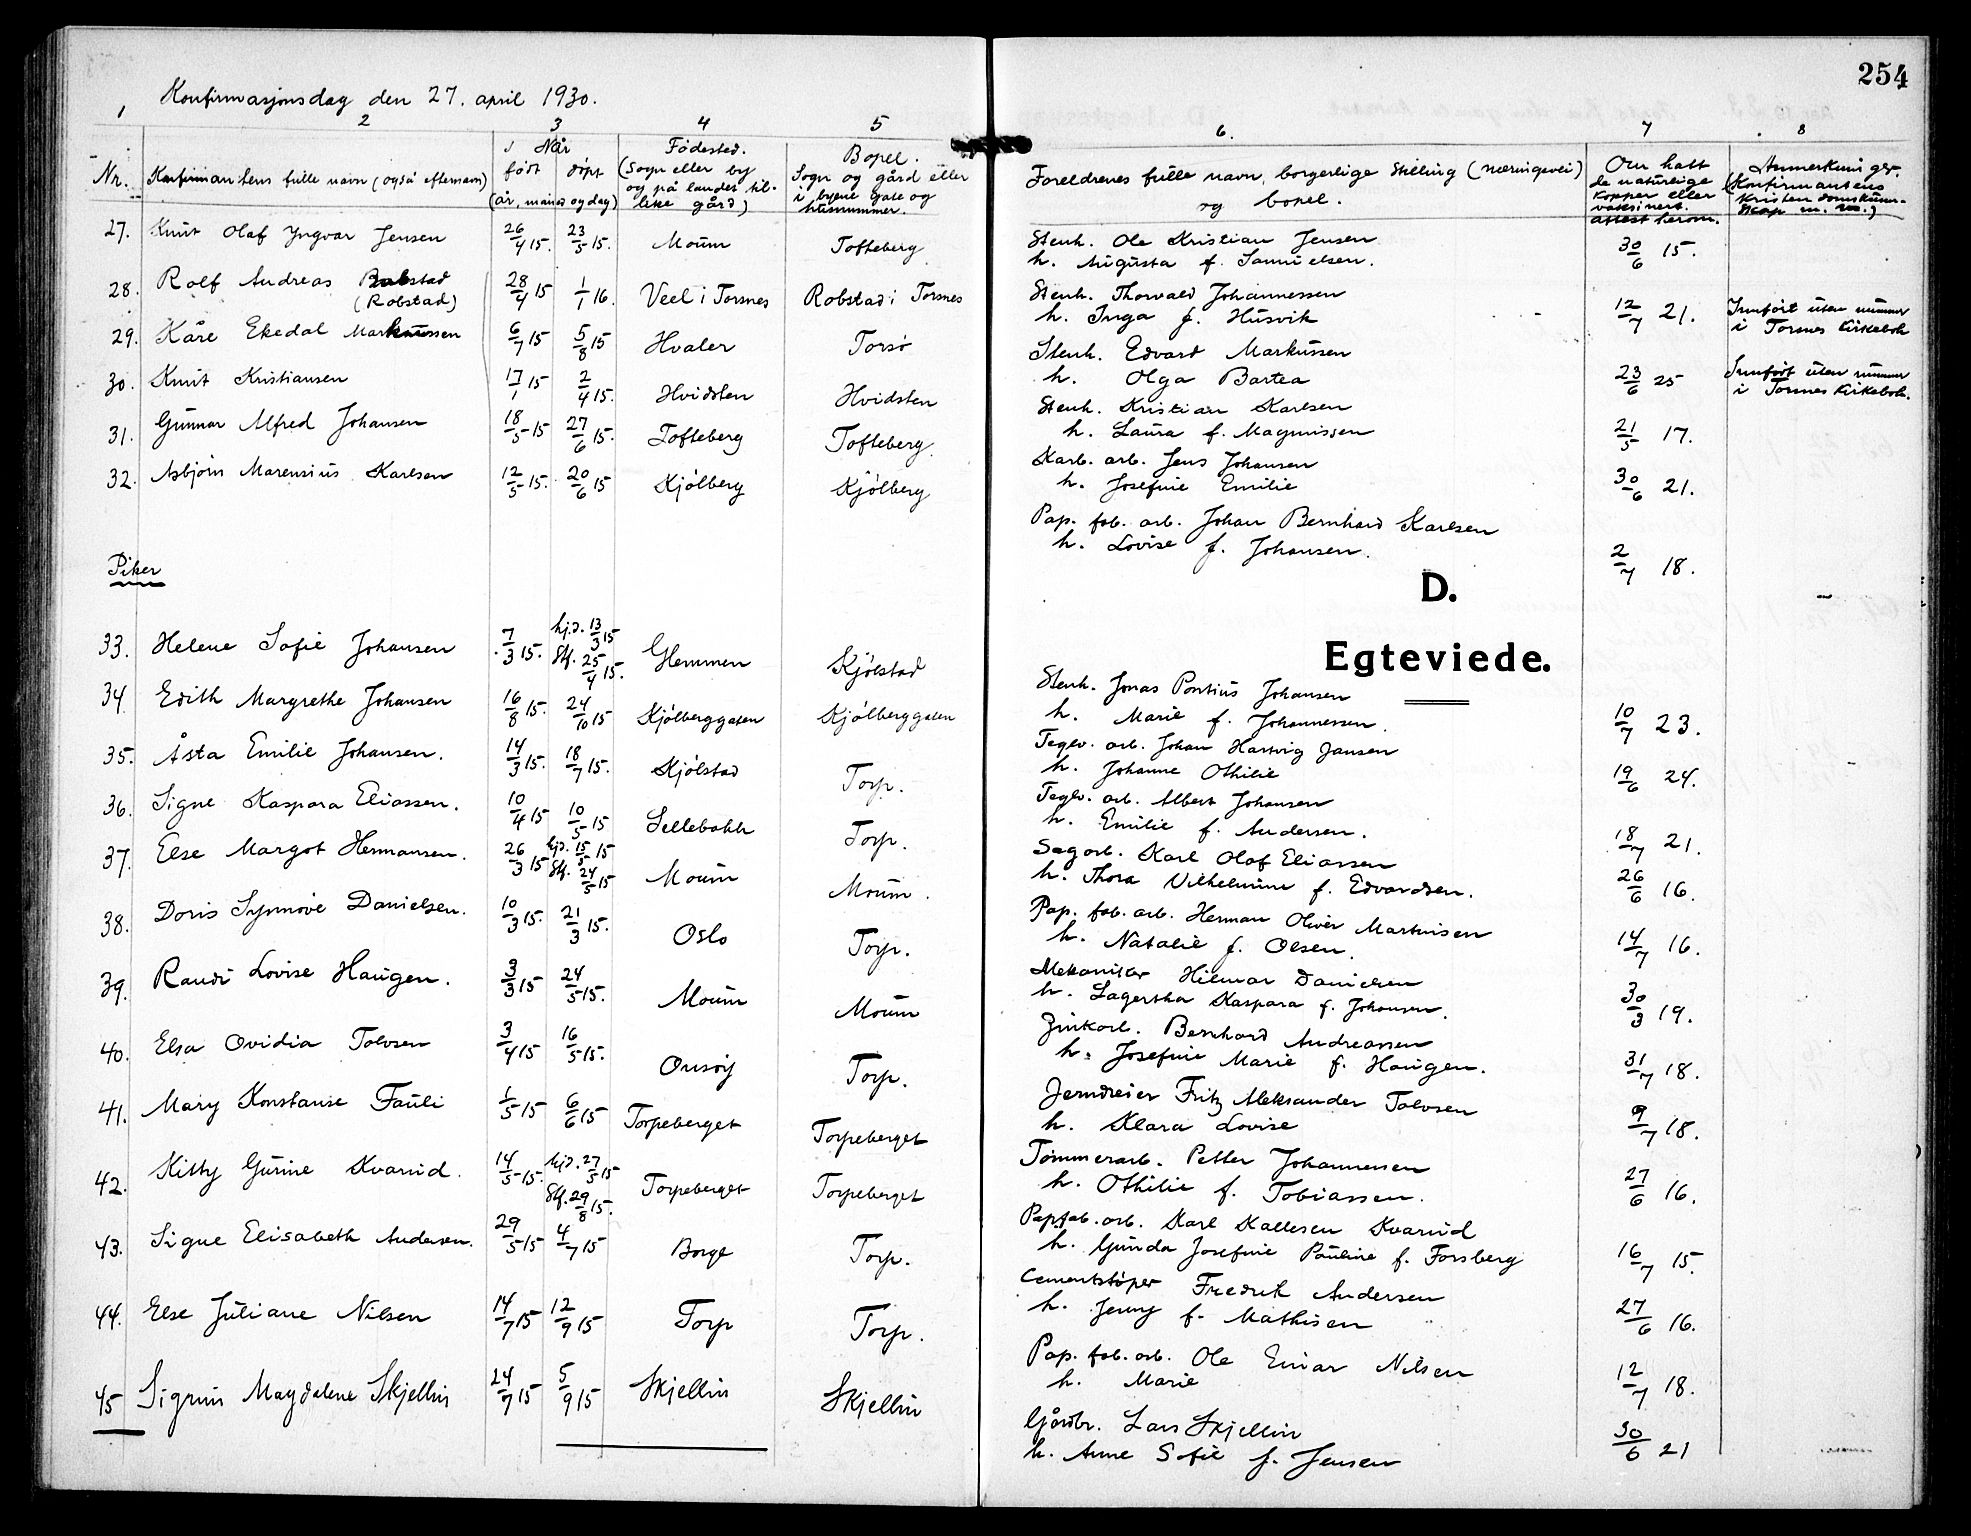 254
Konfirmasjonsdag den 27. april 1930.
1 2 3 4 5 6. 7 8
Nr. Konfirmantens fulle navn (også efternavn) Når født døpt (år, måned og dag) Fødested. (Sogn eller by og på landet tillike gård) Bopel. Sogn og gård eller i byene gate og husnummer. Foreldrenes fulle navn, borgerlige Stilling (næringsvei) og bopel. Om hatt de naturlige kopper eller vaksinert. attest herom. Anmerkninger. (Konfirmantens kristendomskunnskap m. m.)
27. Knut Olaf Yngvar Jensen 26/4 15. 23/5 15. Moum Tofteberg Stenh. Ole Kristian Jensen 30/6 15.
h. Augusta f. Samuelsen.
28. Rolf Andreas Robstad 28/4 15 1/1 16. Veel i Torsnes Robstad i Torsnes Stenh. Thorvald Johannessen 12/7 21. Innført uten nummer
(Robstad) h. Inga f. Husvik i Torsnes Kirkebok
29. Kåre Ekedal Markussen 6/7 15 5/8 15 Hvaler Torsø Stenh. Edvard Markussen 23/6 25 Innført uten nummer
h. Olga Bartea i Torsnes Kirkebok.
30. Knut Kristiansen 17/1 15 2/4 15. Hvidsten Hvidsten Stenh. Kristian Karlsen 21/5 17.
h. Laura f. Magnussen
31. Gunnar Alfred Johansen 18/5 15 27/6 15. Tofteberg Tofteberg. Karb. arb. Jens Johansen 30/6 21.
h. Josefine Emilie
32. Asbjørn Marensius Karlsen 12/5 15. 20/6 15 Kjølberg Kjølberg Pap. fab. arb. Johan Bernhard Karlsen 2/7 18.
h. Lovise f. Johansen.
Piker
D.
Egteviede.
33. Helene Sofie Johansen 7/3 15. hj.d. 13/3 15 Stf. 25/4 15. Glemmen Kjølstad Stenh. Jonas Pontius Johansen 10/7 23.
h. Marie f. Johannessen.
34 Edith Margrethe Johansen 16/8 15. 24/10 15 Kjølberggaten Kjølberggaten Teglv. arb. Johan Hartvig Jansen 19/6 24.
h. Johanne Othilie
35. Åsta Emilie Johansen. 14/3 15. 18/7 15. Kjølstad Torp. Teglv. arb. Albert Johansen 18/7 21.
h. Emilie f. Andersen.
36. Signe Kaspara Eliassen. 10/4 15 10/5 15 Sellebakk Torp. Sagarb. Karl Olaf Eliassen 26/6 16.
h. Thora Vilhelmine f. Edvardsen.
37. Else Margot Hermansen. 26/3 15 hjd. 15/5 15 Stf. 24/5 15 Moum Moum. Pap. fab. arb. Herman Oliver Martinsen 14/7 16.
h. Natalie f. Olsen.
38. Doris Synnøve Danielsen. 10/3 15. 21/3 15. Oslo Torp. Mekaniker Hilmar Danielsen 30/3 19.
h. Lagertha Kaspara f. Johansen.
39. Randi Lovise Haugen. 3/3 15 24/5 15. Moum Moum Zinkarb. Bernhard Andreassen 31/7 18.
h. Josefine Marie f. Haugen.
40. Elsa Ovidia Tolvsen 3/4 15 16/5 15. Onsøy Torp. Jerndreier Fritz Aleksander Tolvsen 9/7 18.
h. Klara Lovise
41. Mary Konstanse Fauli 1/5 15 6/6 15 Torpeberget Torpeberget Tømmerarb. Petter Johannessen 27/6 16.
h. Othilie f. Tobiassen.
42. Kitty Gunine Kvarud. 14/5 15. hjd. 27/5 15 Stf. 29/8 15. Torpeberget Torpeberget Papfab. arb. Karl Kallesen Kvarud 16/7 15.
h. Gunda Josefine Pauline f. Forsberg
43. Signe Elisabeth Andersen. 29/5 15 4/7 15 Borge Torp. Cementstøper Fredrik Andersen 27/6 16.
h. Jenny f. Mathisen
44. Else Juliane Nilsen 14/7 15 12/9 15 Torp Torp. Pap. fab. arb. Ole Einar Nilsen 12/7 18.
h. Marie
45 Sigrun Magdalene Skjellin 24/7 15 5/9 15 Skjellin Skjellin Gårdbr. Lars Skjellin 30/6 21
h. Anne Sofie f. Jensen